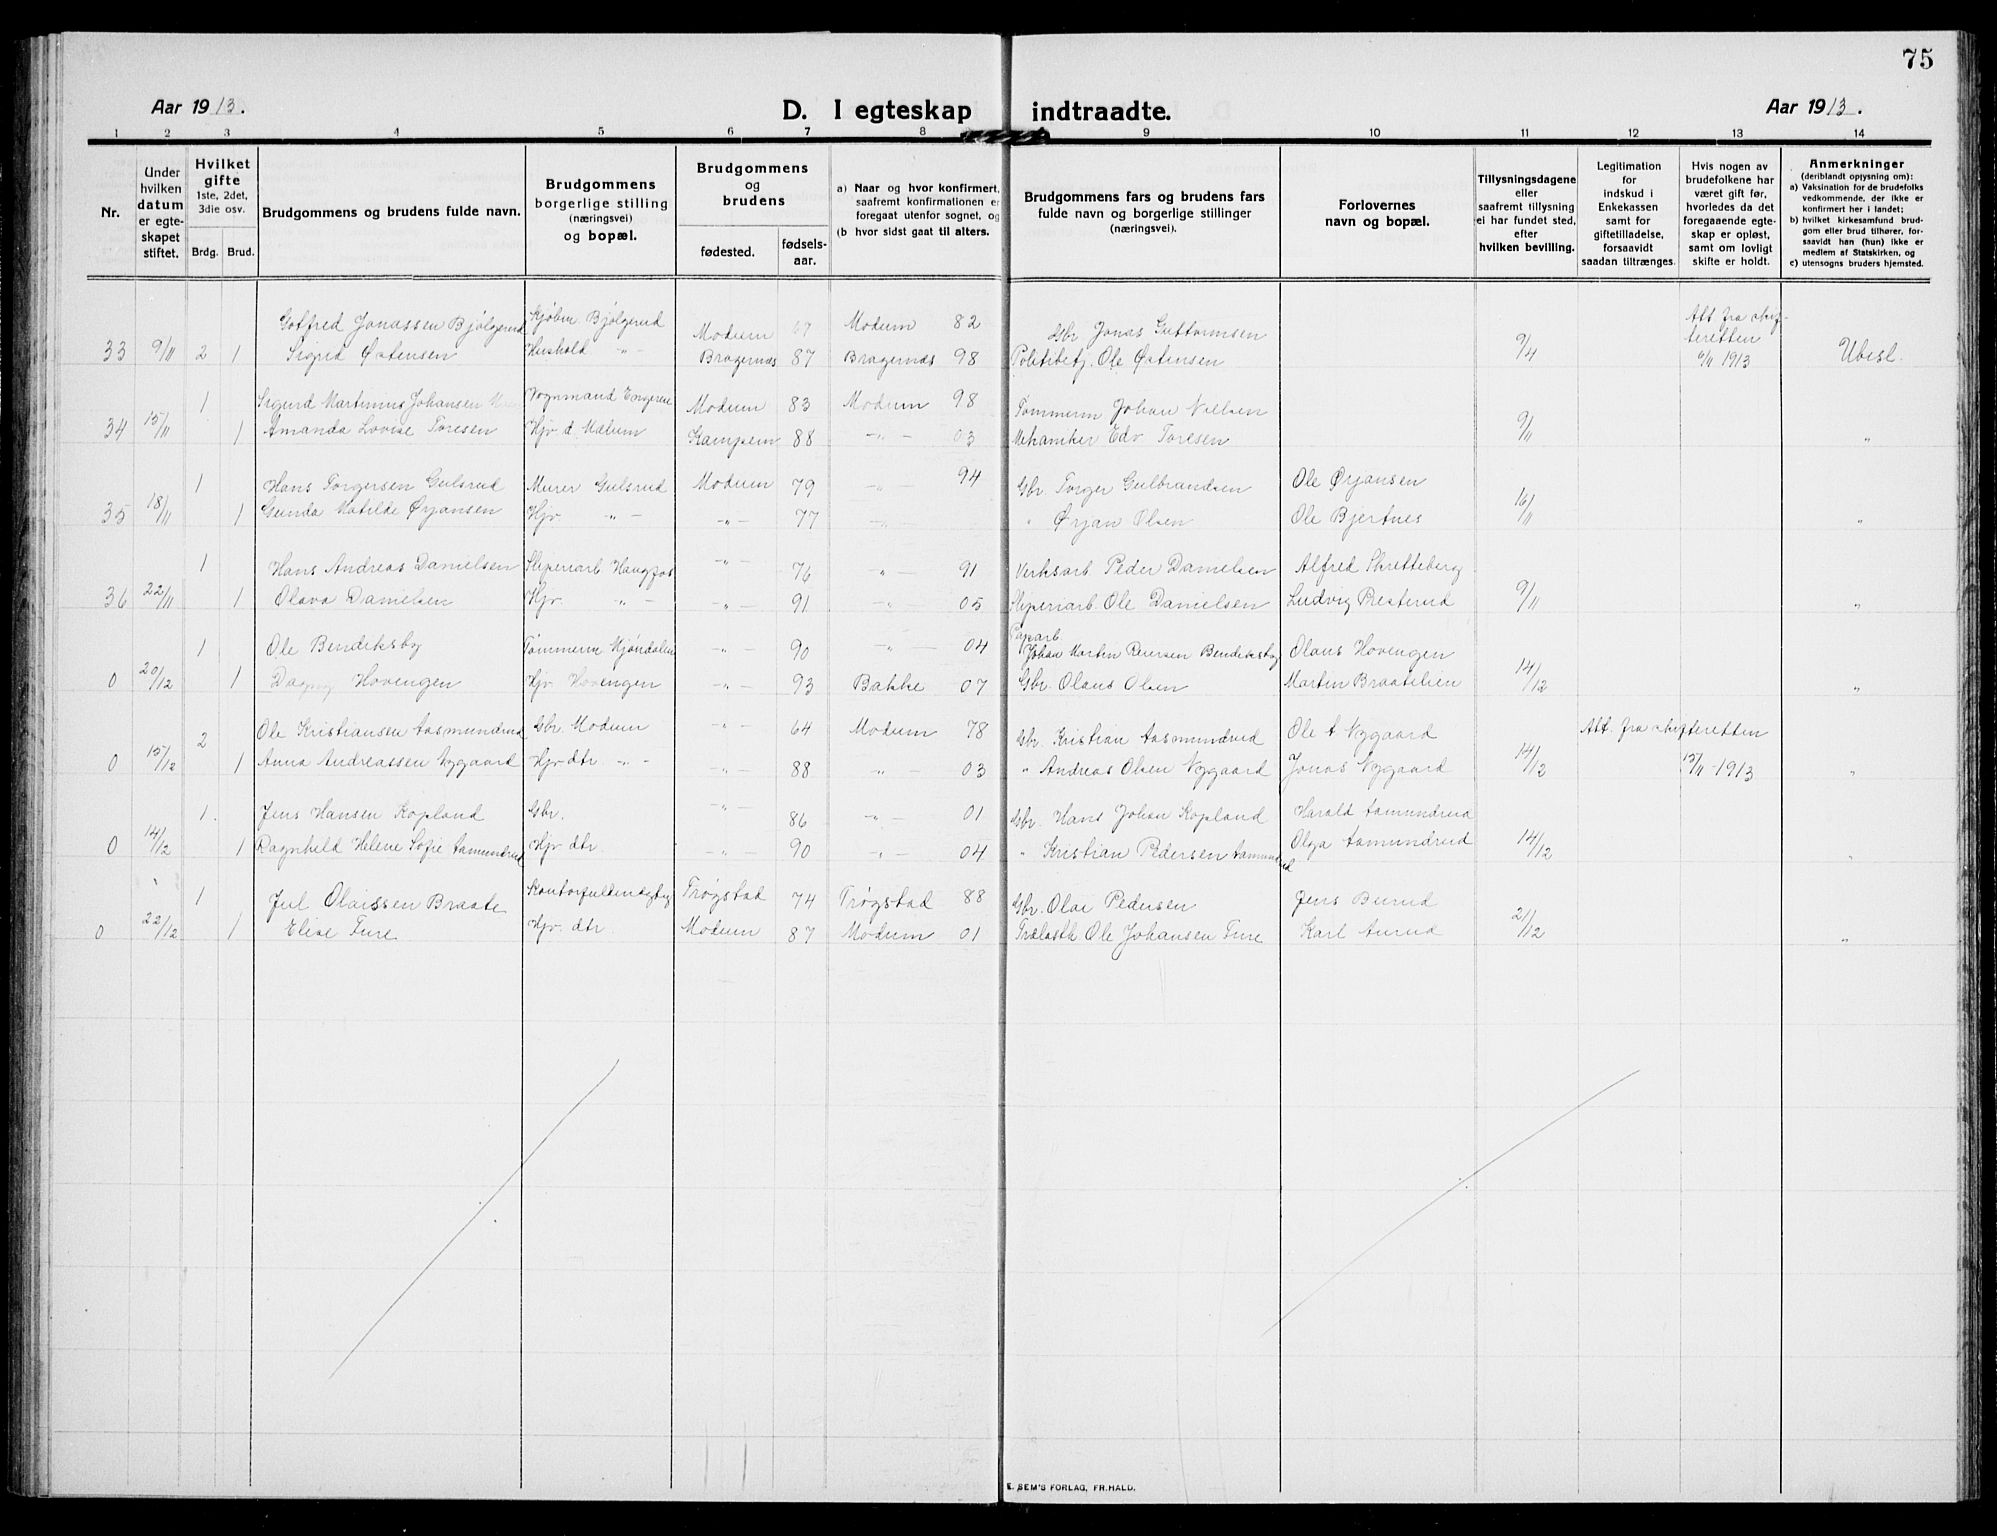 75
Aar 1913.
D. I egteskap indtraadte.
Aar 1913.
1 2 3 4 5 6 7 8 9 10 11 12 13 14
Nr.
Under hvilken datum er egteskapet stiftet.
Hvilket gifte 1ste, 2det, 3die osv.
Brdg. Brud.
Brudgommens og brudens fulde navn.
Brudgommens borgerlige stilling (næringsvei) og bopæl.
Brudgommens og brudens
fødested. fødselsaar.
a) Naar og hvor konfirmert, saafremt konfirmationen er foregaat utenfor sognet, og
(b hvor sidst gaat til alters.
Brudgommens fars og brudens fars fulde navn og borgerlige stillinger (næringsvei).
Forlovernes navn og bopæl.
Tillysningsdagene eller saafremt tillysning ei har fundet sted, efter hvilken bevilling.
Legitimation for indskud i Enkekassen samt for giftetilladelse, forsaavidt saadan tiltrænges.
Hvis nogen av brudefolkene har været gift før, hvorledes da det foregaaende egteskap er opløst, samt om lovligt skifte er holdt.
Anmerkninger (deriblandt opysning om):
a) Vaksination for de brudefolks vedkommende, der ikke er konfirmert her i landet;
b) hvilket kirkesamfund brudgom eller brud tilhører, forsaavidt han (hun) ikke er medlem af Statskirken, og
c) utensogns bruders hjemsted.
Gotfred Jonassen Bjølgerud Kjøbm. Bjølgerud Modum Modum 82 Gbr Jonas Guttormsen Att fra skifteretten
33 9/11 2 1 Sigrid Østensen Hushold " - Bragernæs 87 Bragernæs 98 Politibetj. Ole Østensen 9/4 6/11 1913 Ubesl.
1 Sigurd Martinius Johansen Vognmand Modum 83 Modum 98 Tømmerm Johan Nielsen
34 15/11 1 Amanda Lovise Toresen Hjv. d. Mælum 88 -"- 03 Mekaniker Edv Toresen 9/11 "
1 Hans Torgersen Gulsrud Murer Gulsrud Modum 79 -"- 94 Gbr. Torger Gulbrandsen Ole Ørjansen
35 18/11 1 Gunda Matilde Ørjansen Hjv. "- -"- 77 -"- " Ørjan Olsen Ole Bjertnes 16/11 "
1 Hans Andreas Danielsen Sliperiarb Haugfos -"- 76 -"- 91 Verksarb Peder Danielsen Alfred Skretteberg
36 22/11 1 Olava Danielsen Hjv. "- -"- 91 -"- 05 Sliperiarb. Ole Danielsen Ludvig Presterud 9/11 "
1 Ole Bendiksby Tømmerm Mjøndalen -"- 90 -"- 04 Paparb. Johan Martin Reiersen Bendiksby Olaus Hovengen
0 20/12 1 Dagny Hovengen Hjv Hovengen -"- 93 Bakke 07 Gbr. Olaus Olsen Martin Braatelien 14/12 "
2 Ole Kristiansen Aasmundrud Gbr Modum -"- 64 Modum 78 Gbr. Kristian Aasmundrud Ole A Nygaard Att. fra skifteretten
0 15/12 1 Anna Andreassen Nygaard Hjv dtr. "- -"- 88 -"- 03 " Andreas Olsen Nygaard Jonas Nygaard 14/12 15/11-1913 "
1 Jens Hansen Kopland Gbr. -"- 86 -"- 01 Gbr. Hans Johan Kopland Harald Aamundrud
0 14/12 1 Ragnhild Helene Sofie Aamundrud Hjv dtr. -"- 90 -"- 04 " Kristian Pedersen Aamundrud Olga Aamundrud 14/12 "
1 Jul Olaissen Braate Kontorfuldmægtig Trøgstad 74 Trøgstad 88 Gbr. Olai Pedersen Jens Burud
0 22/12 1 Elise Fure Hjv. dtr. Modum 87 Modum 01 Trælasth Ole Johansen Fure Karl Aurud 21/12 "
E. SEM'S FORLAG, FR.HALD.